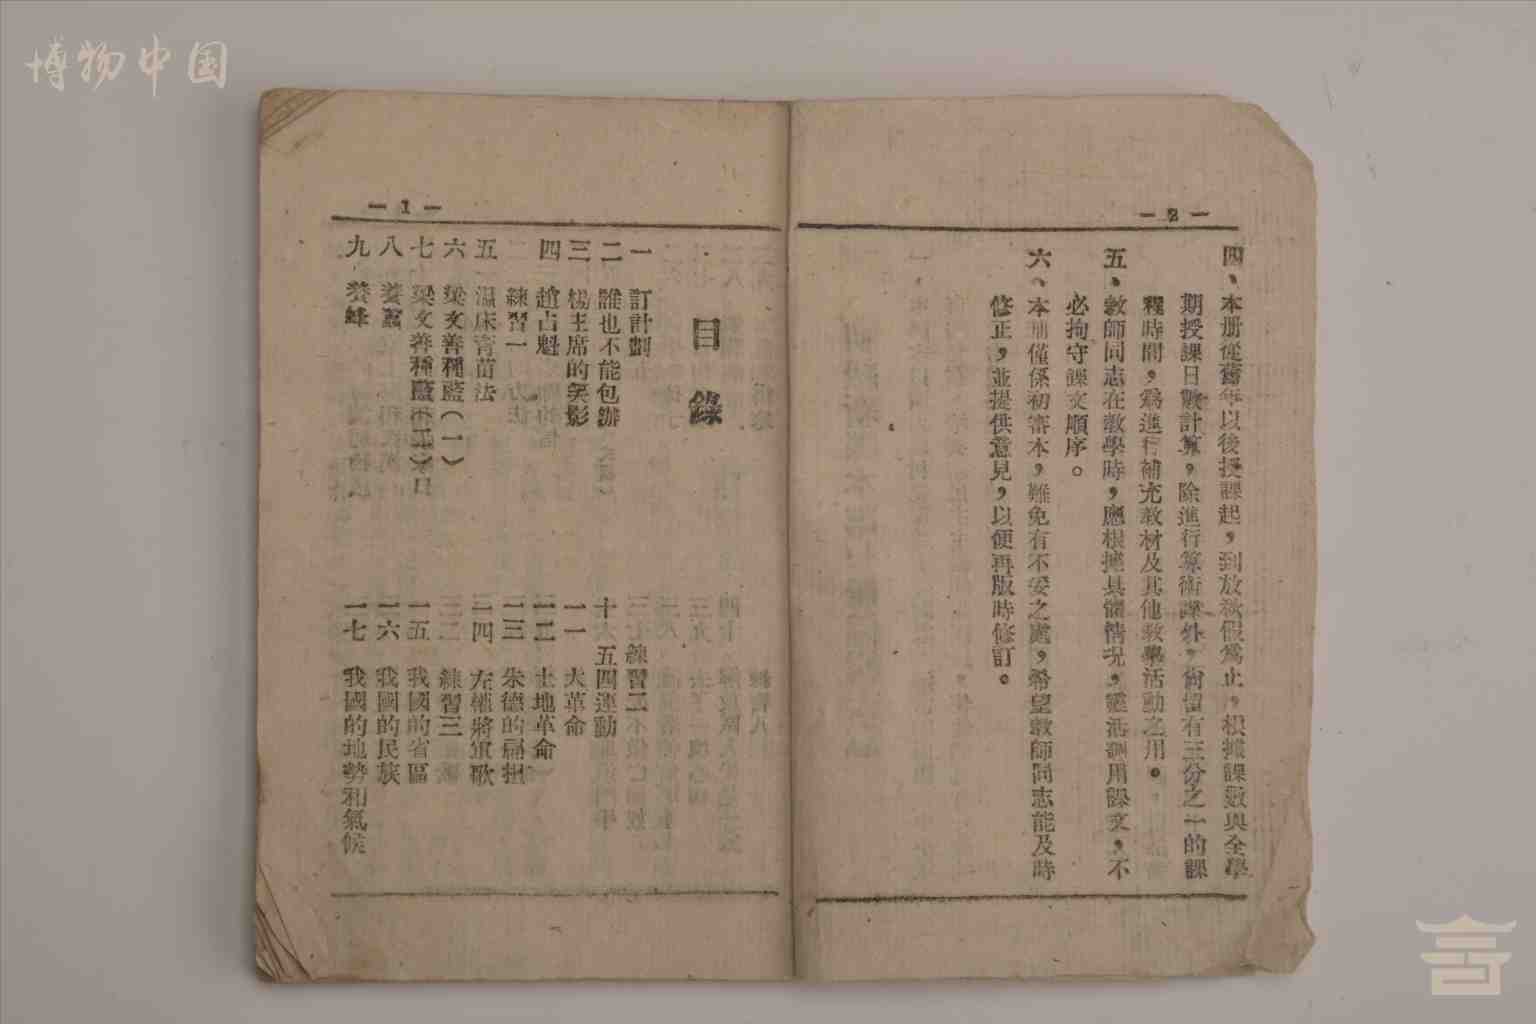 博物中国
－2－
四、本册從舊年以後授課起，到放秋假爲止，根據課數與全學
期授課日數計算，除進行算術課外，尚留有三分之一的課
程時間，爲進行補充敎材及其他敎學活動之用。
五、敎師同志在敎學時，應根據具體情况，靈活調用課文，不
必拘守課文順序。
六、本册僅係初審本，難免有不妥之處，希望敎師同志能及時
修正，並提供意見，以便再版時修訂。
－1－
目錄
一 訂計劃
二 誰也不能包辦
三 楊主席的笑影
四 趙占魁
練習一
五 温床育苗法
六 梁文善種藍（一）
七 梁文善種藍（二）
八 養蠶
九 養蜂
練習二
十 五四運動
一一 大革命
一二 土地革命
一三 朱德的扁担
一四 左權將軍歌
練習三
一五 我國的省區
一六 我國的民族
一七 我國的地勢和氣候